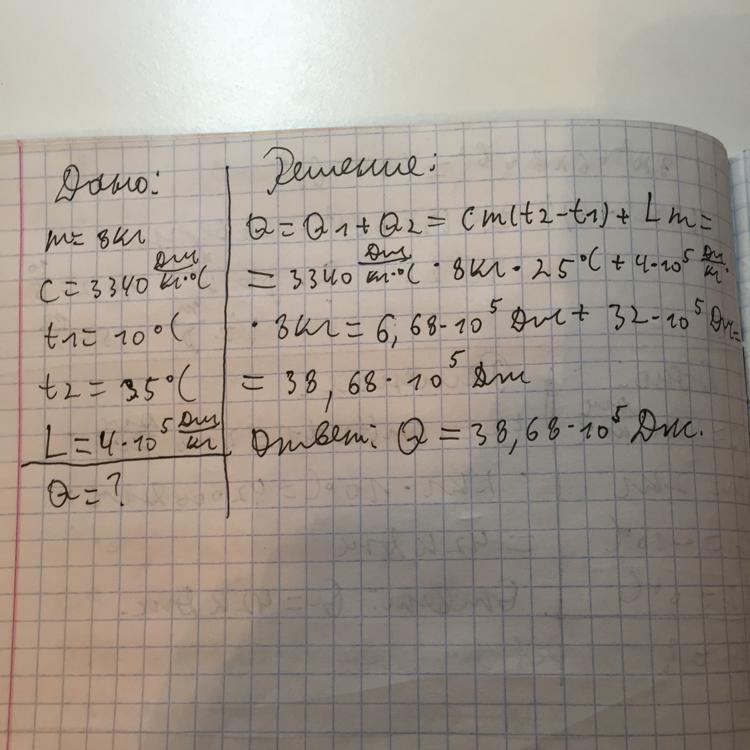 Дано:
m = 8 кг
c = 3340 Дж/кг·°C
t1 = 10°C
t2 = 35°C
L = 4·10⁵ Дж/кг
Q = ?
Решение:
Q = Q1 + Q2 = cm(t2 - t1) + Lm =
= 3340 Дж/кг·°C · 8кг · 25°C + 4·10⁵ Дж/кг ·
· 8кг = 6,68·10⁵ Дж + 32·10⁵ Дж =
= 38,68·10⁵ Дж
Ответ: Q = 38,68·10⁵ Дж.